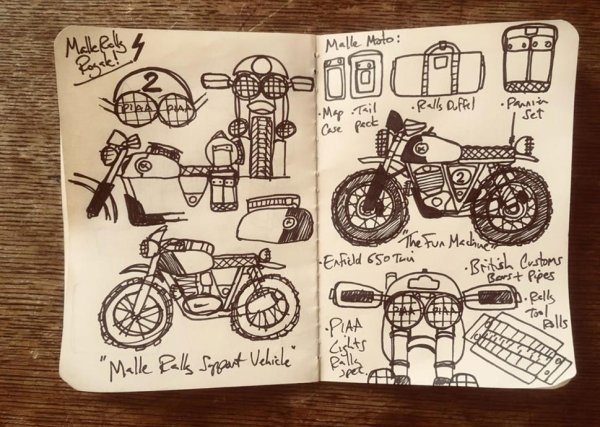 Malle Rally
Royale!
2
PIAA PIAA
"Malle Rally Support Vehicle"
Malle Moto:
• Map
Case
• Tail
pack
• Rally Duffel
• Pannier
Set
2
"The Fun Machine"
• Enfield 650 Twin
• British Customs
Beast Pipes
PIAA PIAA
• Rally
Tool
Rolls
• PIAA
Lights
Rally
spec.